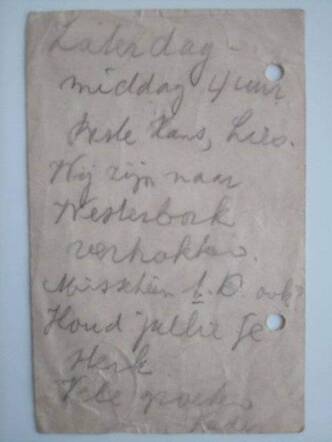 Zaterdag-
middag 4 uur
Beste Hans, Lies.
Wij zijn naar
Westerbork
vertrokken.
Misschien t. D. ook?
Houd jullie ge
sterk
Vele